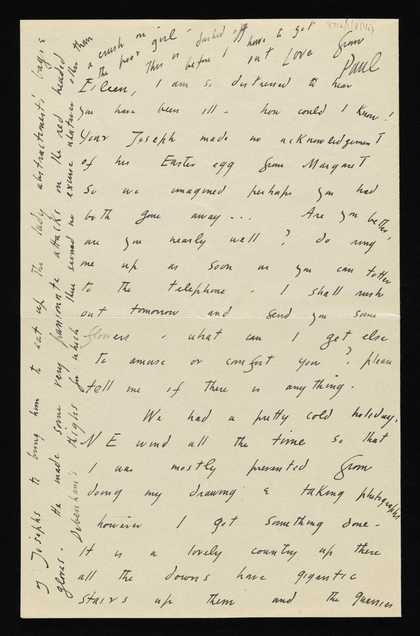 Eileen, I am so distressed to hear
you have been ill - how could I know!
Your Joseph made no acknowledgement
of his Easter egg from Margaret
so we imagined perhaps you had
both gone away... Are you better,
are you nearly well? do ring
me up as soon as you can totter
to the telephone. I shall rush
out tomorrow and send you some
flowers - what can I get else
to amuse or comfort you? please
tell me if there is anything.
We had a pretty cold holiday,
N E wind all the time so that
I was mostly prevented from
doing my drawing & taking photographs
however I got something done -
It is a lovely country up there
all the downs have gigantic
stairs up them and the
of Josephs to bring him to eat up the lady abstractionists'
gloves. He made some very passionate attacks on the red headed
Debenham's Knight for which there seemed no excuse other than
a crush on the poor girl -
This is before I have to get
out Love from
Paul